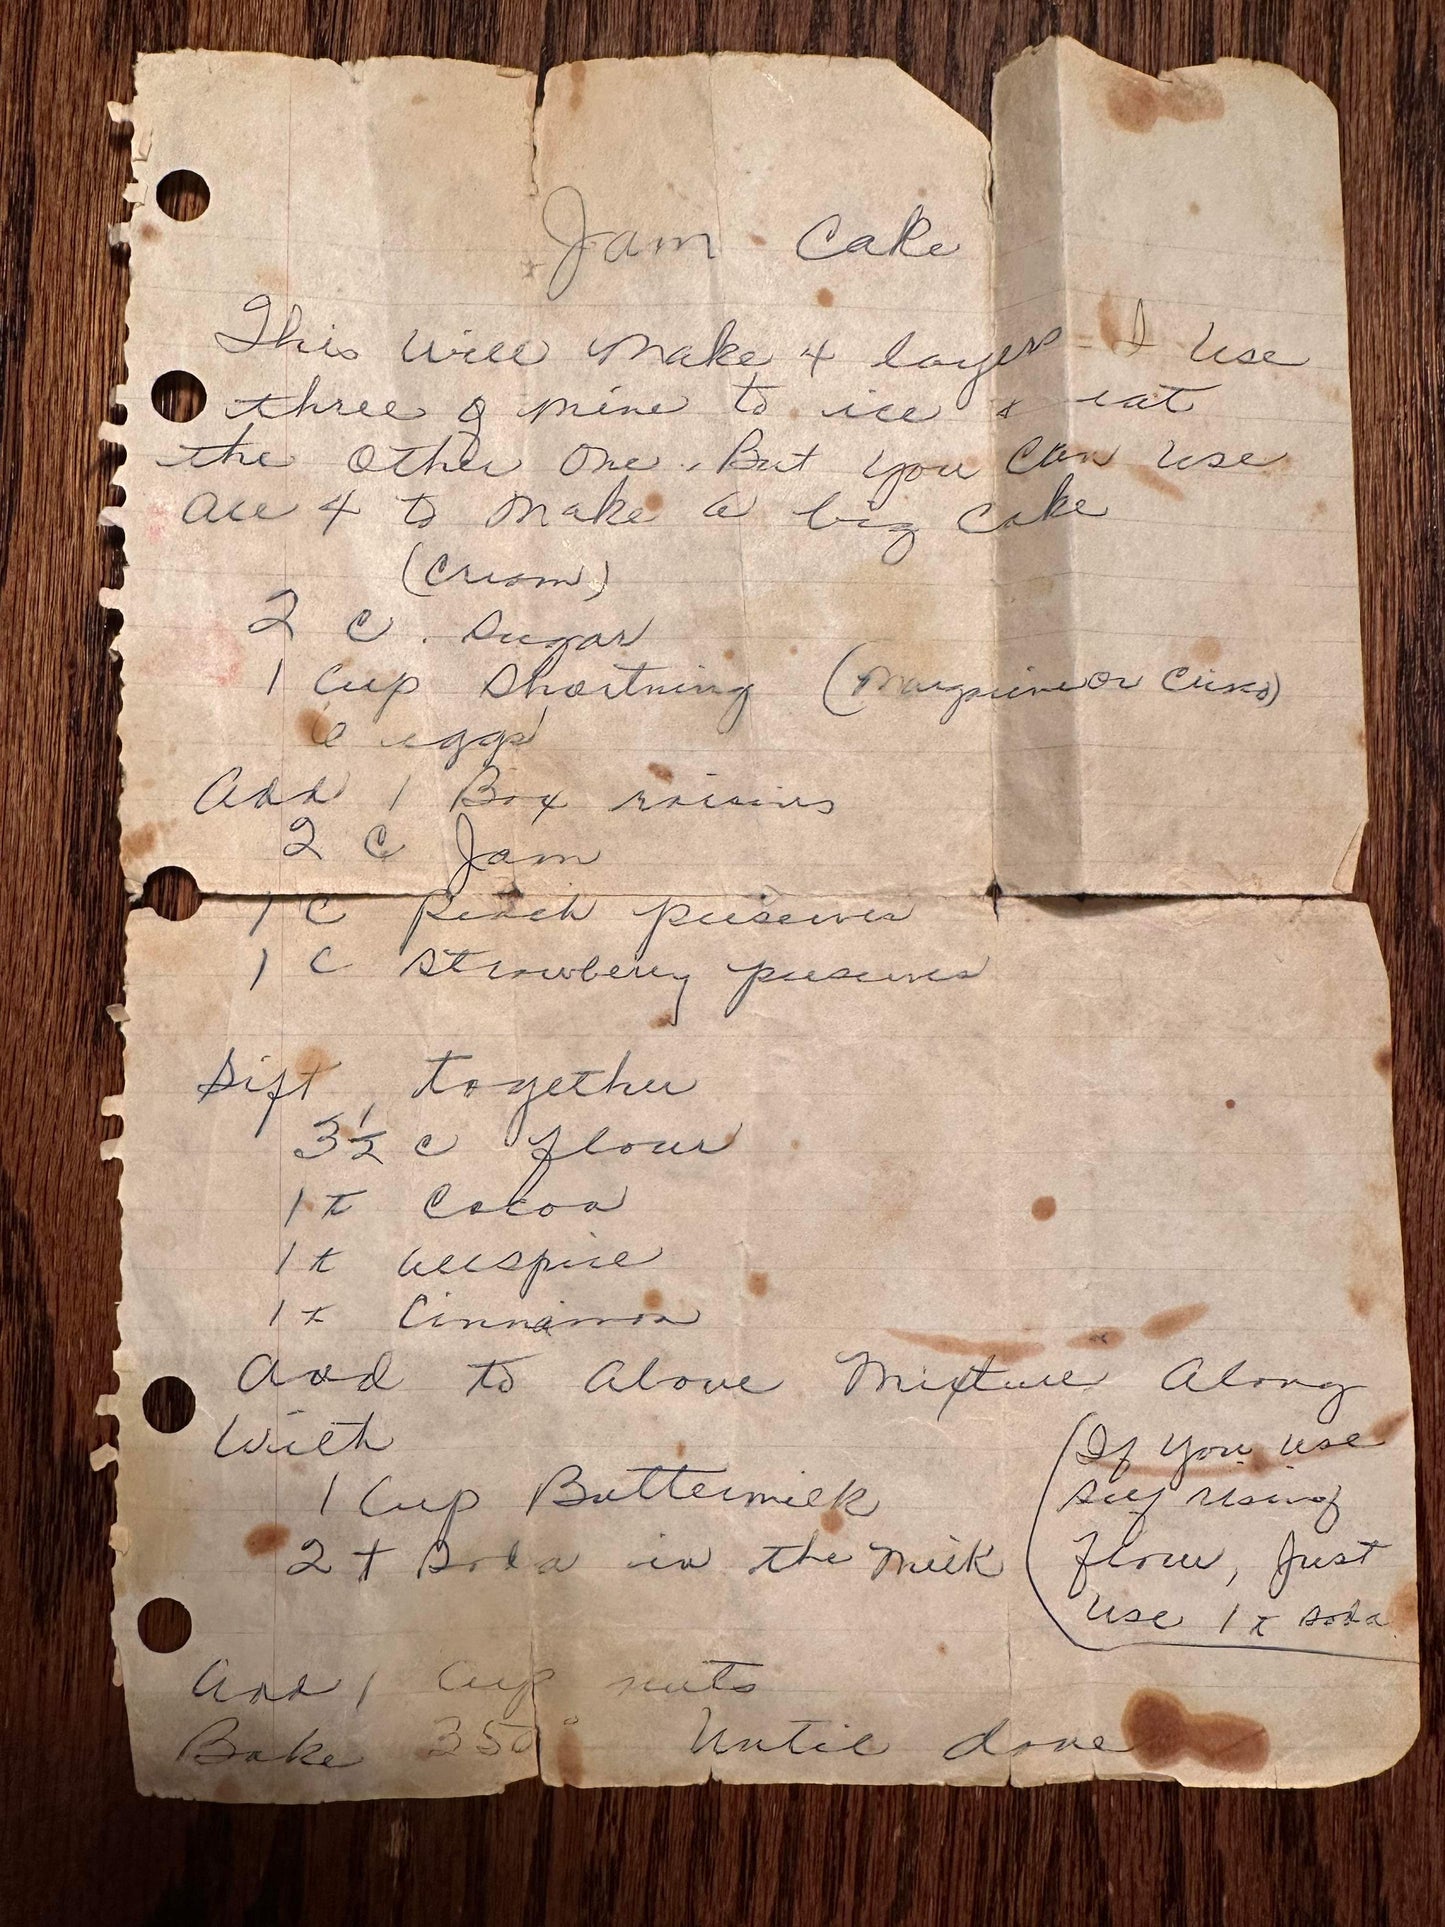 Jam Cake
This will make 4 layers - I use
three of mine to ice & eat
the other one. But you can use
all 4 to make a big cake
(Cream)
2 c. sugar
1 cup shortning (Margarine or Crisco)
6 eggs
Add 1 Box raisins
2 c Jam
1 c peach preserves
1 c strawberry preserves
Sift together
3½ c flour
1 t Cocoa
1 t allspice
1 t Cinnamon
Add to above Mixture Along
with
1 Cup Buttermilk
2 t soda in the milk
(If you use
self rising
flour, just
use 1 t soda
Add 1 Cup nuts
Bake 350° Until done